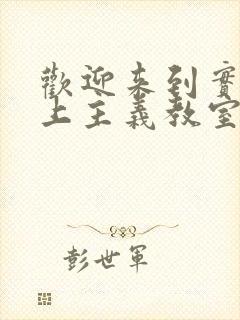 歡迎来到實
上主義教室
彭世軍